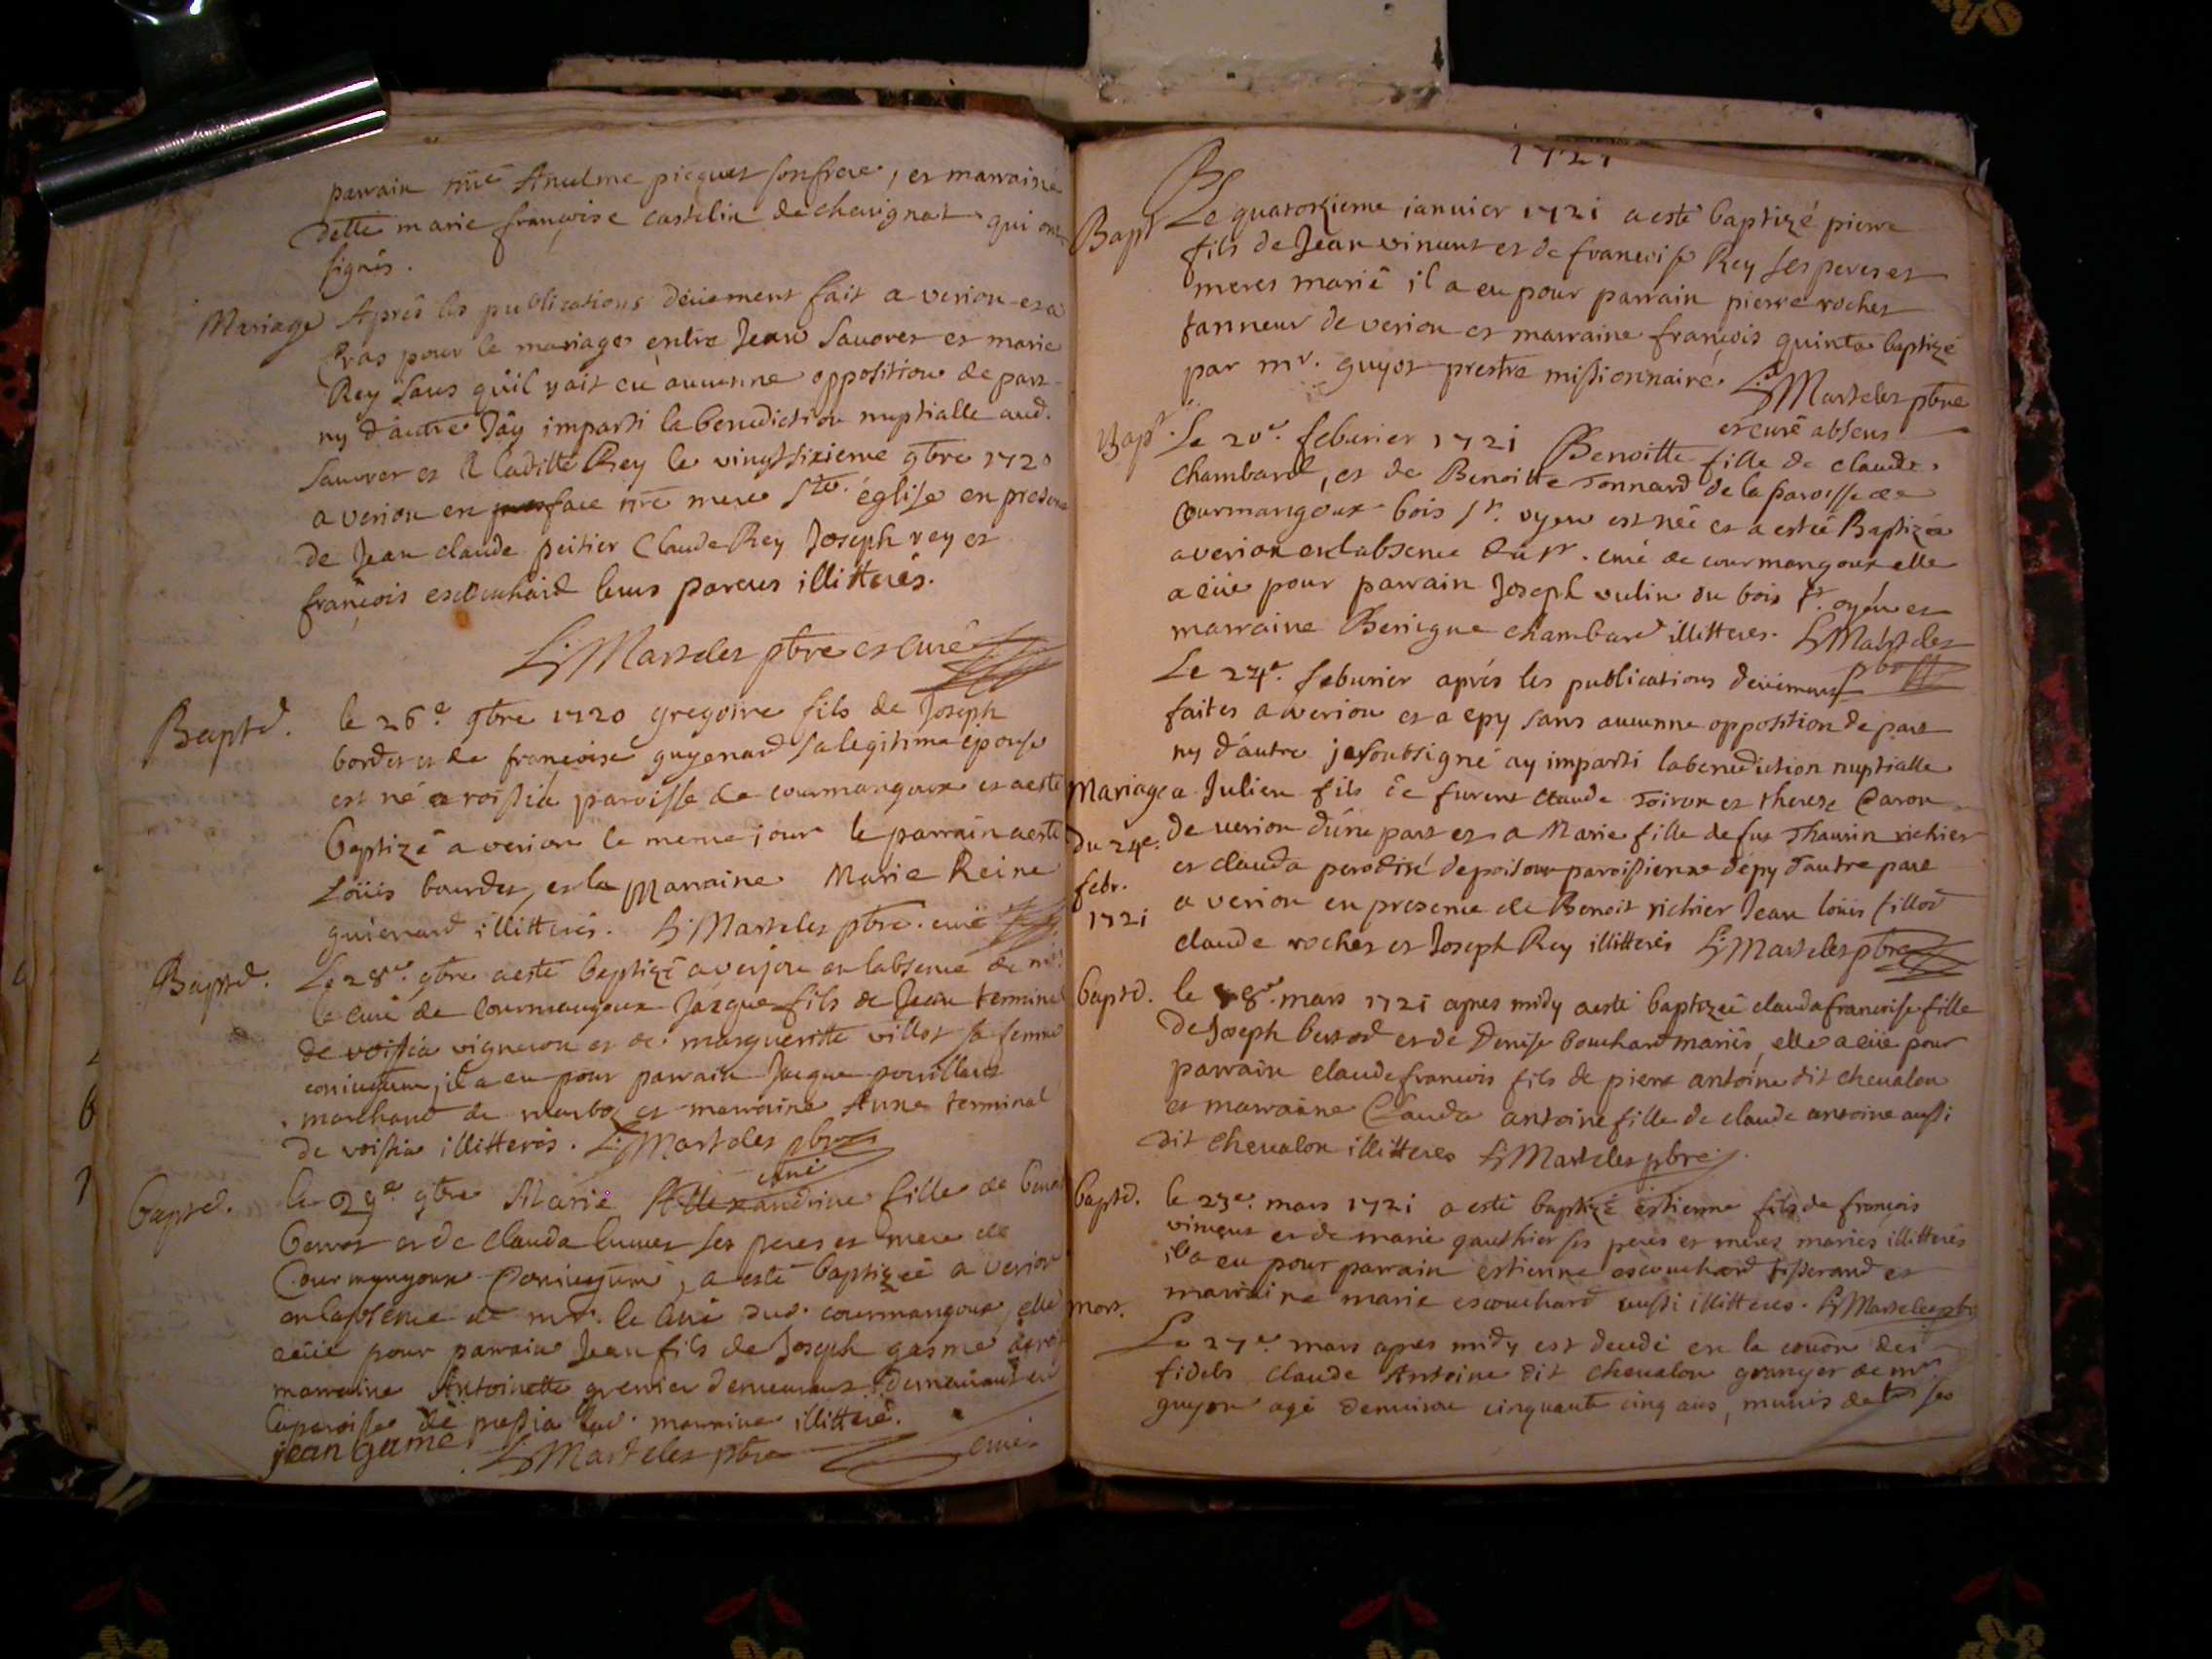 parrain mre Anselme picquet son frere, et marraine
dlle marie françoise castelin de chavignat qui ont
signés.
Mariage Aprés les publications deüement fait a verion et a
Cras pour le mariage entre Jean Sauoret et marie
Rey sans qüil y ait eu aucunne opposition de part
ny d'autre J'ay imparti la benediction nuptialle aud.
Sauoret et a laditte Rey le vingtsixieme 9bre 1720
a verion en face nre mere Ste. église en presence
de Jean claude peitier Claude Rey Joseph rey et
françois escouchard leurs parens illitterés.
Martelet pbre et Curé
Baptd. le 26e 9bre 1720 gregoire fils de Joseph
bordet et de françoise guyenard sa legitime épouse
est né a roissia paroisse de courmangoux et a esté
baptizé a verion le meme jour le parrain a esté
Loüis bourdet, et la Marraine Marie Reine
guienard illitterés. Martelet pbre. curé
Baptd. Le 28e. 9bre a esté baptizé a verjon en labsence de mr
le curé de Courmangoux Jacque fils de Jean terminal
de voissia vigneron et de margueritte villot sa femme
coniugum, il a eu pour parrain Jacque
marchand de marboz et marraine Anne terminal
de voissia illitterés. Martelet pbre
curé
baptd. le 29e 9bre Marie Allexandrine fille de benoit
et de Clauda ses peres et mere de
Courmangoux Coniugum, a esté baptizeé a verion
en labsence de mr. le Curé dud. courmangoux, elle
a eüe pour parrain Jean fils de Joseph gasme et
marraine Antoinette grenier demeurant
la paroisse de pressia lad. marraine illitterée.
jean game Martelet pbre curé
1721
Bapt Le quatorzieme ianuier 1721 a esté baptizé pierre
fils de Jean vincent et de françoise Rey ses peres et
meres marié il a eu pour parrain pierre rochet
tanneur de verion et marraine françois quinta baptizé
par mr. guyot prestre missionnaire. Martelet pbre
et curé absent
Bapt. Le 20e. feburier 1721 Benoitte fille de claude
chambard, et de Benoitte Tonnard de la paroisse de
Courmangoux bois st. oyen est née et a esteé Baptizéa
a verion en labsence du sr. curé de courmangoux elle
a eüe pour parrain Joseph vulin du bois st. oyen et
marraine Benigne chambard illitteres. Martelet
pbre
Le 24e. feburier aprés les publications deüement
faites a verion et a epy sans aucunne opposition de part
ny d'autre je soubsigné ay imparti la benediction nuptialle
Mariage a Julien fils de furent Claude Toiron et therese Caron
du 24e. de verion d'une part et a Marie fille de fut Thaurin richier
febr. et clauda perodire de poisoux paroissienne d'epy d'autre part
1721 a verion en presence de Benoit richier Jean loüis fillod
claude rochet et Joseph Rey illitterés Martelet pbre
baptd. le 8e. mars 1721 apres midy a esté baptizeé clauda françoise fille
de Joseph berrod et de Denise bouchard mariés, elle a eüe pour
parrain claude francois fils de pierre antoine dit cheualon
et marraine Clauda antoine fille de claude antoine aussi
dit cheualon illitteres Martelet pbre
baptd. le 23e. mars 1721 a esté baptizé estienne fils de françois
vincent et de marie gauthier ses peres et meres mariés illitterés
il a eu pour parrain estienne escouchard tisserand et
marraine marie escouchard aussi illitteres. Martelet pbr
mort.
Le 27e. mars apres midy est decedé en la coïon des
fidels claude Antoine dit cheualon granger de mr
guyon agé denuiron cinquante cinq ans, munis de ses